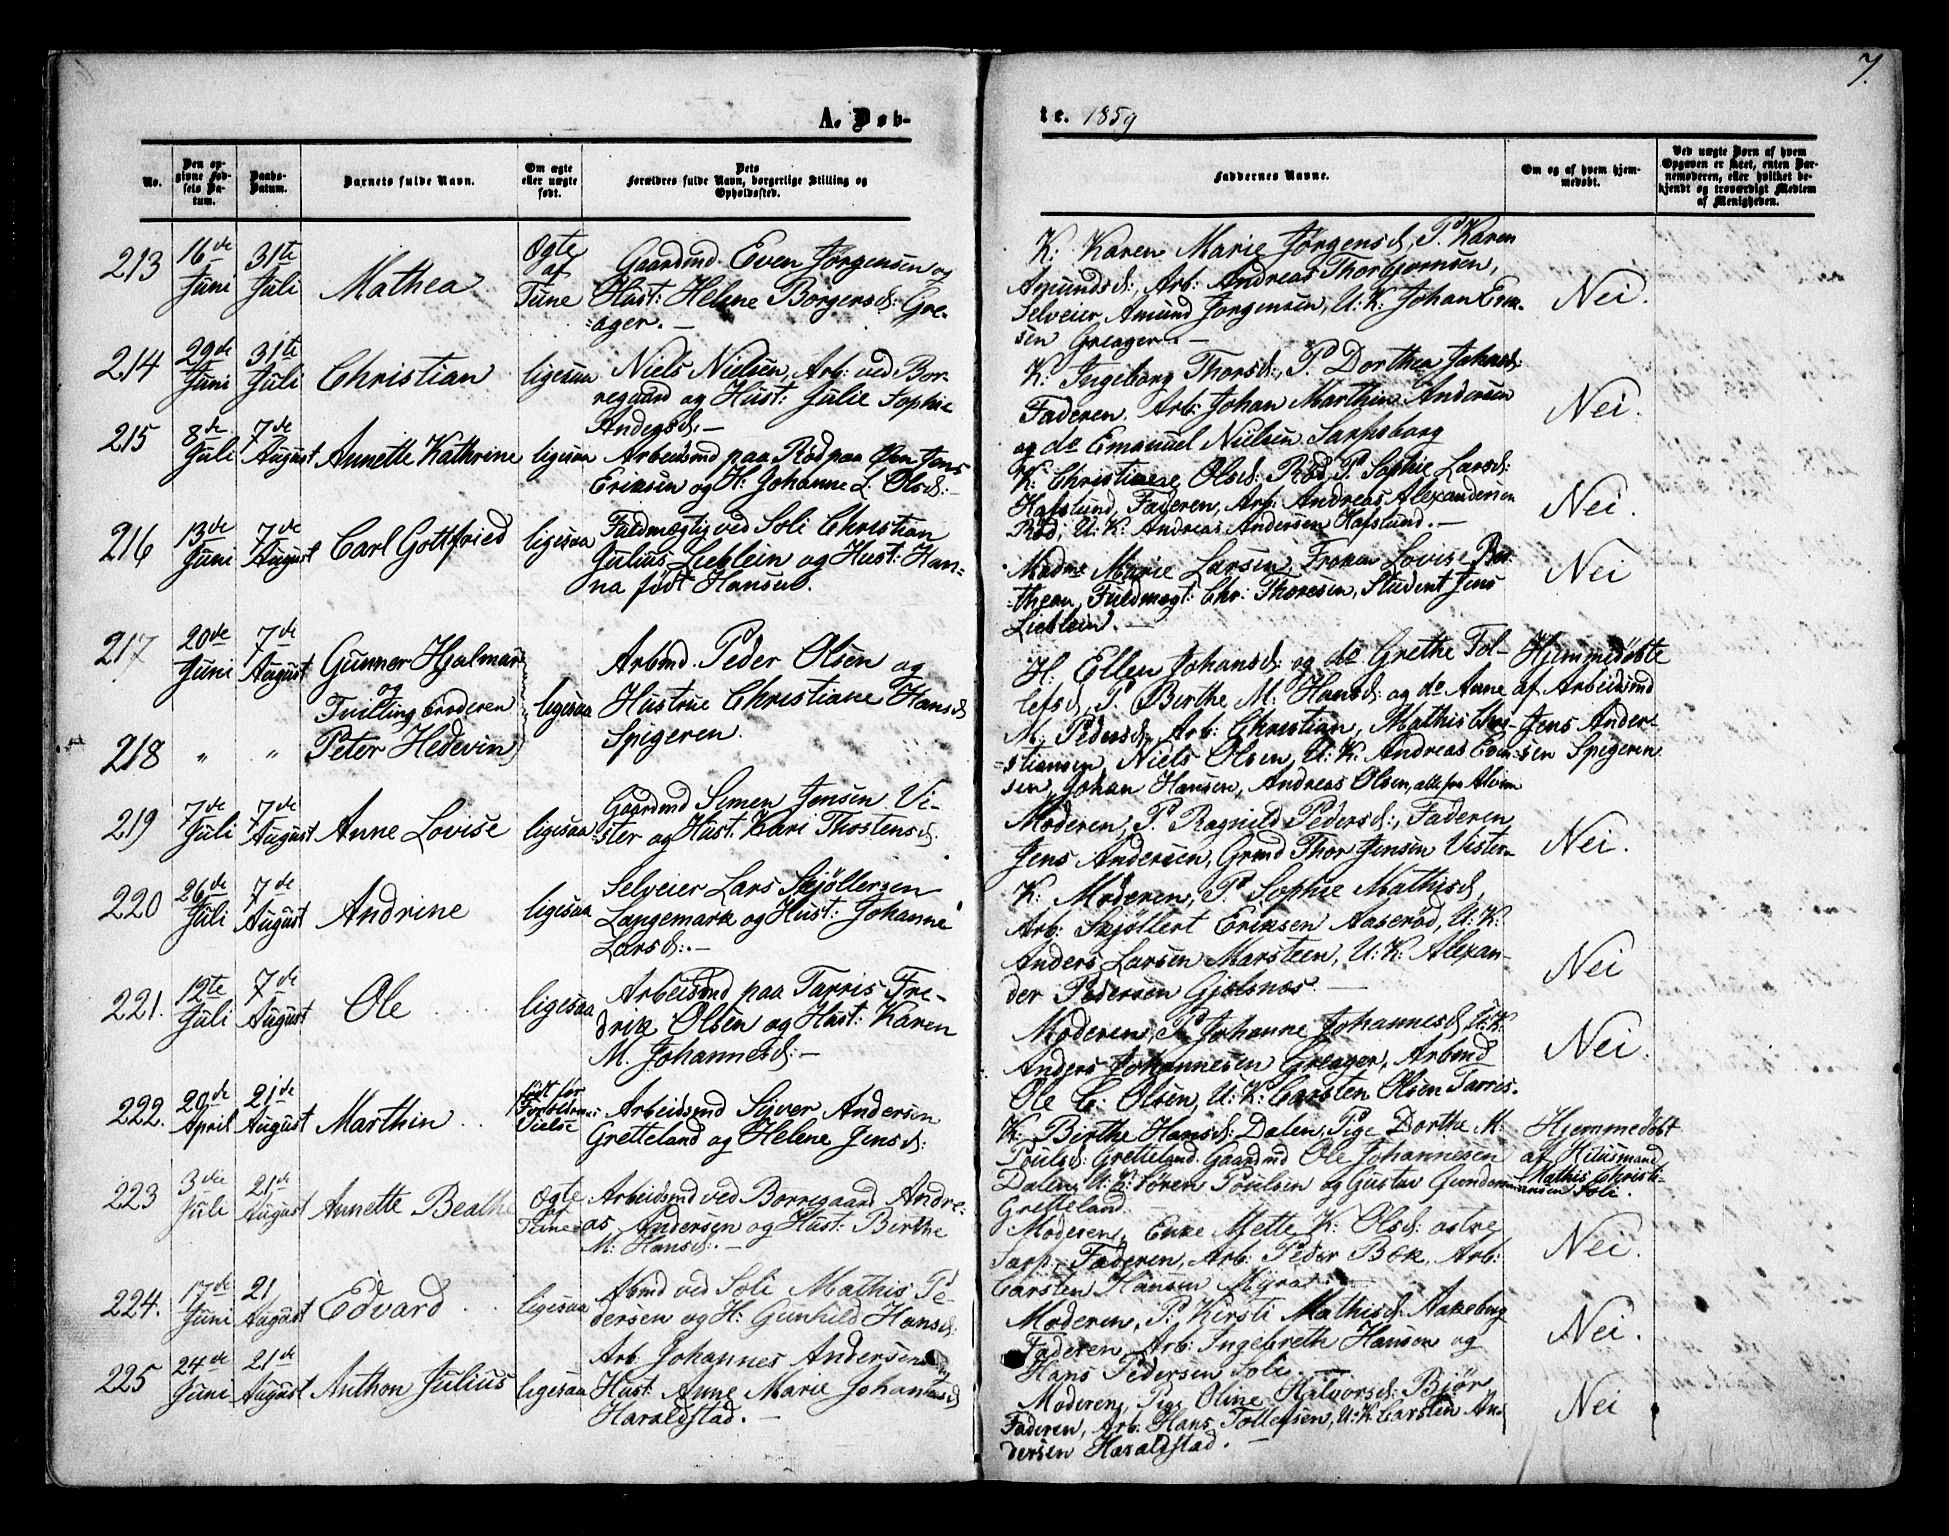 7.
A. Døb-
te. 1859
No.
Den opgivne Fødsels Datum.
Daabs-Datum.
Barnets fulde Navn.
Om ægte eller uægte født.
Dets Forældres fulde Navn, borgerlige Stilling og Opholdssted.
Faddernes Navne.
Om og af hvem hjemmedøbt.
Ved uægte Børn af hvem Opgaven er skeet, enten Barnemoderen, eller hvilket bekjendt og troværdigt Medlem af Menigheden.
213 16de Juni 31te Juli Mathea Ægte af Tune
Gaardmd Even Jørgensen og
Hust: Helene Borgersd: Gre-
ager. —
K: Karen Marie Jørgensd, P. Karen
Amundsd:, Arb: Andreas Thorbjørnsen,
Selveier Amund Jørgensen, U: K: Johan Even-
sen Greager. —
Nei.
214 29de Juni 31te Juli Christian ligesaa
Niels Nielsen, Arb: ved Bor-
regaard og Hust: Julie Sophie
Andersd: —
K: Ingeborg Thorsd:, P. Dorthea Johansd:
Faderen. Arb: Johan Marthin Andersen
og do Emanuel Nielsen Sarpsborg
Nei.
215 8de Juli 7de August Annette Kathrine ligesaa
Arbeidsmd paa Rød paa Øen Jens
Eriksen og H: Johanne L. Olsd: —
K: Christiane Olsd: Rød, P. Sophie Larsd:
Hafslund, Faderen, Arb: Andreas Alexandersen
Rød, U: K: Andreas Andersen Hafslund. —
Nei.
216 13de Juni 7de August Carl Gottfried ligesaa
Fuldmægtig ved Soli Christian
Julius Lieblein og Hust: Han-
na født Hansen.
Madme Marie Larsen, Frøken Lovise
Fuldmægt: Chr: Thoresen, Student Jens
Lieblein. —
Nei
217 20de Juni 7de August Gunner Hjalmar
og
Tvillingbroderen
218 " " Peter Hedevin
ligesaa
Arbmd. Peder Olsen og
Hustrue Christiane Hansd
Spigeren.
H. Ellen Johansd: og do Grethe Tol-
lefsd, P. Birthe M. Hansd: og do Anne
M. Pedersd, Arb: Christian, Mathis Chri-
stiansen, Niels Olsen, U: K: Andreas Even-
sen, Johan Hansen, Andreas Olsen, alle fra Alvim
Hjemmedøbte
af Arbeidsmd
Jens Ander-
sen Spigeren
219 7de Juli 7de August Anne Lovise ligesaa
Gaardmd Simen Jensen Vi-
ster og Hust: Kari Thostensd:
Moderen, P. Ragnild Pedersd:, Faderen,
Jens Andersen, Grmd Thor Jensen Vister
Nei.
220 26de Juli 7de August Andrine ligesaa
Selveier Lars Skjøllersen
Langemark og Hust: Johanne
Larsd:. —
K: Moderen, P. Sophie Mathisd,
Arb: Skjøllert Eriksen Aaserød, U: K:
Anders Larsen Marsteen, U: K: Alexan-
der Pedersen Gjelsnæs. —
Nei
221. 12te Juli 7de August Ole ligesaa
Arbeidsmd paa Tarris Fre-
drik Olsen og Hust: Karen
M. Johannesd: —
Moderen, P. Johanne Johannesd, U: K:
Anders Johannesen Greager, Arbmd
Ole C. Olsen, U: K: Carsten Olsen Tarris.
Nei.
222. 20de April 21de August Marthin født før Forældrenes Vielse
Arbeidsmd Siver Andersen
Gretteland og Helene Jensd:
K: Birthe Hansd: Dalen, Pige Dorthe M:
Poulsd: Gretteland. Gaardmd Ole Johannesen
Dalen, U: K: Søren Poulsen og Gustav Gunder-
Gretteland.
Hjemmedøbt
af Huusmand
Mathis Christi-
ansen Soli.
223 3die Juli 21de August Annette Beathe Ægte Tune
Arbeidsmd ved Borregaard Andre-
as Andersen og Hust: Birthe
M. Hansd:. —
Moderen, Enke Mette K. Olsd: østre
Sarp, Faderen, Arb: Peder Bæk, Arb:
Carsten Hansen Myra. —
Nei.
224. 17de Juni 21 August Edvard ligesaa
Abmd ved Soli Mathis Pe-
dersen og H: Gunhild Hansd:
Moderen, P. Kirsti Mathisd: Aakeberg
Faderen, Arb: Ingebreth Hansen og
Hans Pedersen Soli. —
Nei.
225 24de Juni 21de August Anthon Julius ligesaa
Arb: Johannes Andersen og
Hust: Anne Marie Johannesd
Haraldstad. —
Moderen, Pige Oline Halvorsd: Bjør
Faderen, Arb: Hans Tollefsen, U: K Carsten An-
dersen Haraldstad. —
Nei